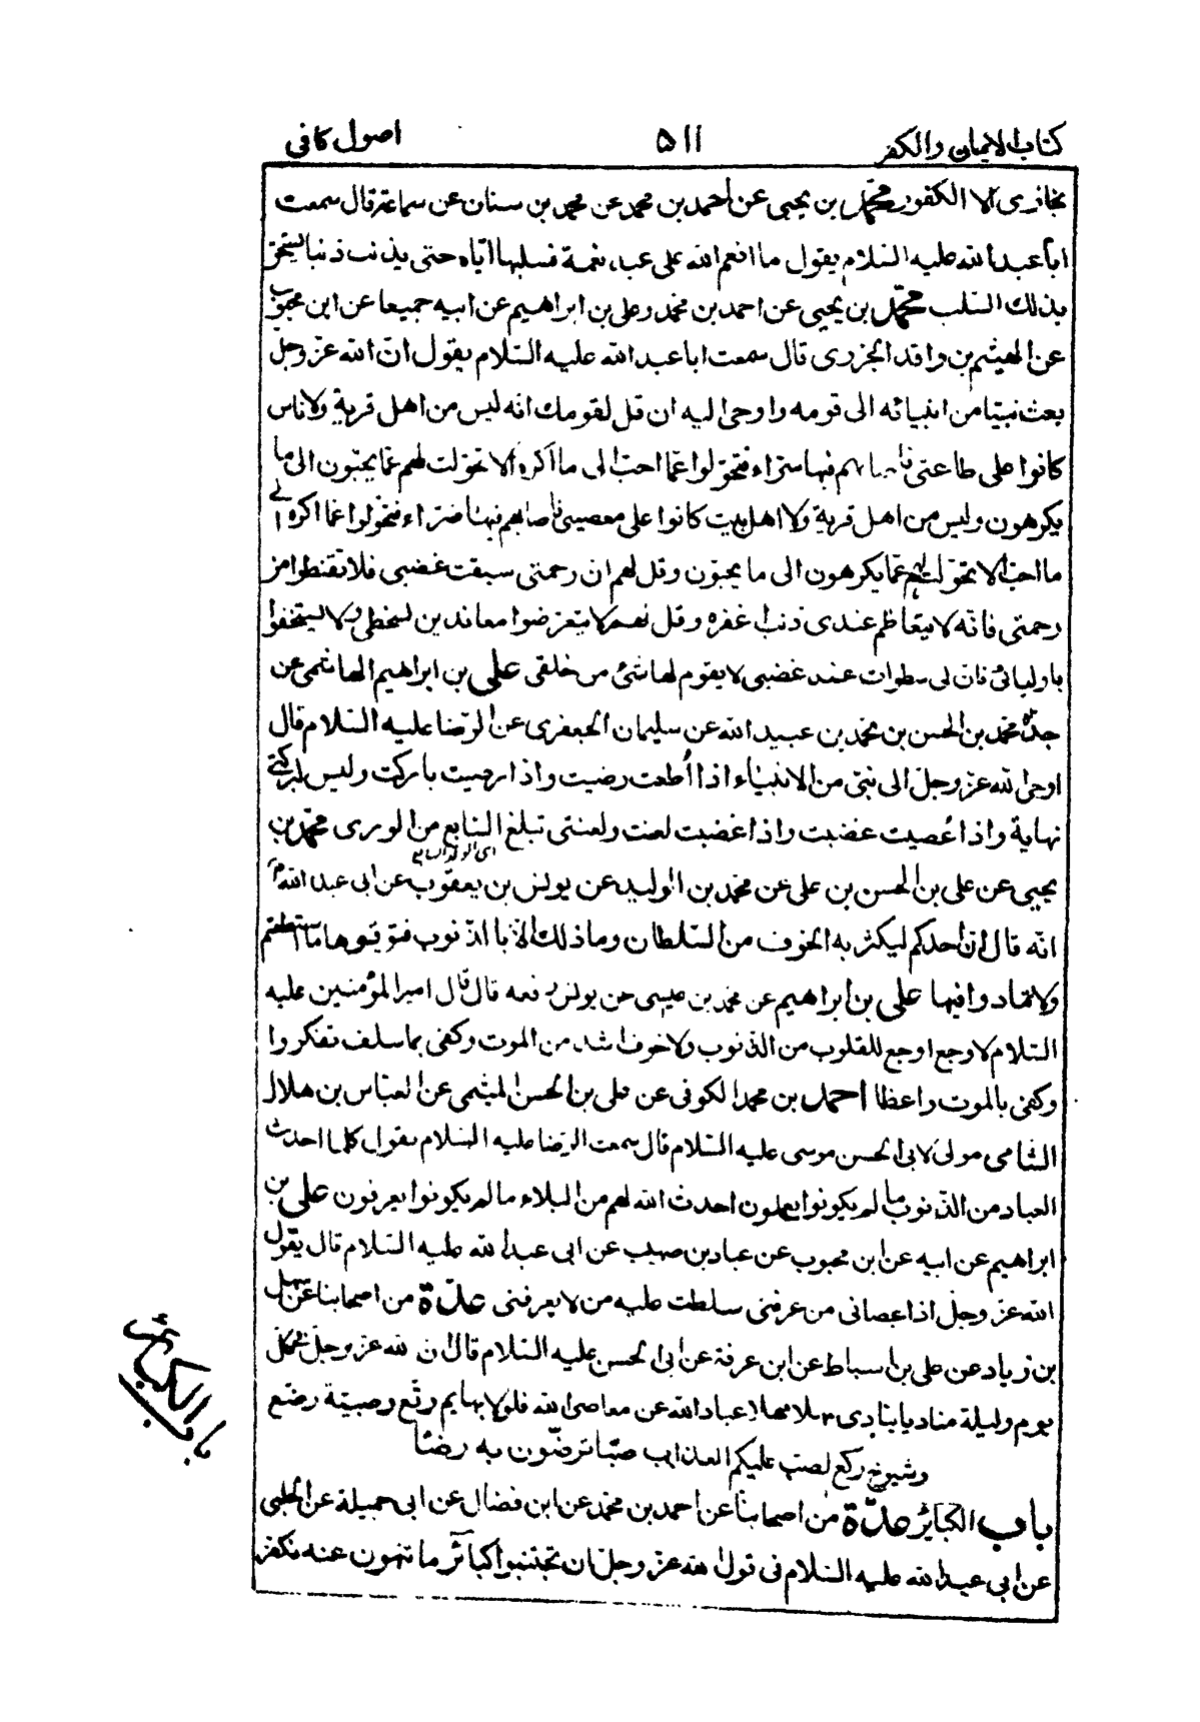 كتاب الايمان والكفر ۵۱۱ اصول كافى
نجازى الا الكفور محمّد بن يحيى عن أحمد بن محمد عن محمد بن سنان عن سماعة قال سمعت
ابا عبد الله عليه السّلام يقول ما انعم الله على عبد نعمة فسلبها ايّاه حتى يذنب ذنبا يستحق
بذلك السّلب محمّد بن يحيى عن احمد بن محمّد وعلى بن ابراهيم عن ابيه جميعا عن ابن محبوب
عن الهيثم بن واقد الجزرى قال سمعت ابا عبد الله عليه السّلام يقول انّ الله عزّ وجلّ
بعث نبيّا من انبيائه الى قومه واوحى اليه ان قل لقومك انه ليس من اهل قرية ولا ناس
كانوا على طاعتى فاصابهم فيها سرّاء فتحوّلوا عمّا احبّ الى ما اكره الا تحوّلت لهم عمّا يحبّون الى ما
يكرهون وليس من اهل قرية ولا اهل بيت كانوا على معصيتى فاصابهم فيها ضرّاء فتحوّلوا عمّا اكره الى
ما احبّ الا تحوّلت لهم عمّا يكرهون الى ما يحبّون وقل لهم ان رحمتى سبقت غضبى فلا تقنطوا من
رحمتى فانّه لا يتعاظم عندى ذنب اغفره وقل لهم لا يتعرضوا معاندين لسخطى ولا يستخفوا
باوليائى فان لى سطوات عند غضبى لا يقوم لها شئ من خلقى على بن ابراهيم الهاشمى عن
جدّه محمّد بن الحسن بن محمّد بن عبيد الله عن سليمان الجعفرى عن الرّضا عليه السّلام قال
اوحى الله عزّ وجلّ الى نبىّ من الانبياء اذا أُطعت رضيت واذا رضيت باركت وليس لبركتى
نهاية واذا عُصيت غضبت واذا غضبت لعنت ولعنتى تبلغ السّابع من الورى محمّد بن
اى الولد السابع
يحيى عن على بن الحسن بن على عن محمّد بن الوليد عن يونس بن يعقوب عن ابى عبد الله ع
انّه قال انّ احدكم ليكثر به الخوف من السّلطان وما ذلك الّا بالذّنوب فتوقوها ما استطعتم
ولا تمادوا فيها على بن ابراهيم عن محمّد بن عيسى عن يونس رفعه قال قال امير المؤمنين عليه
السّلام لا وجع اوجع للقلوب من الذّنوب ولا خوف اشد من الموت وكفى بما سلف تفكروا
وكفى بالموت واعظا احمد بن محمد الكوفى عن على بن الحسن الميثمى عن العبّاس بن هلال
الشّامى مولى لابى الحسن موسى عليه السّلام قال سمعت الرّضا عليه السّلام يقول كلما احدث
العباد من الذّنوب ما لم يكونوا يعملون احدث الله لهم من البلاء ما لم يكونوا يعرفون على بن
ابراهيم عن ابيه عن ابن محبوب عن عباد بن صهيب عن ابى عبد الله عليه السّلام قال يقول
الله عزّ وجلّ اذا عصانى من عرفنى سلطت عليه من لا يعرفنى عدّة من اصحابنا عن سهل
بن زياد عن على بن اسباط عن ابن عرفة عن ابى الحسن عليه السّلام قال ان لله عزّ وجلّ فى كل
يوم وليلة مناديا ينادى مهلا مهلا عباد الله عن معاصى الله فلولا بهايم رتّع وصبيّة رضّع
وشيوخ ركّع لصبّ عليكم العذاب صبّا ترضّون به رضّا
باب الكباير عدّة من اصحابنا عن احمد بن محمّد عن ابن فضال عن ابى جميلة عن الحلبى
عن ابى عبد الله عليه السّلام فى قول الله عزّ وجلّ ان تجتنبوا كبآئر ما تنهون عنه نكفر
باب الكبائر